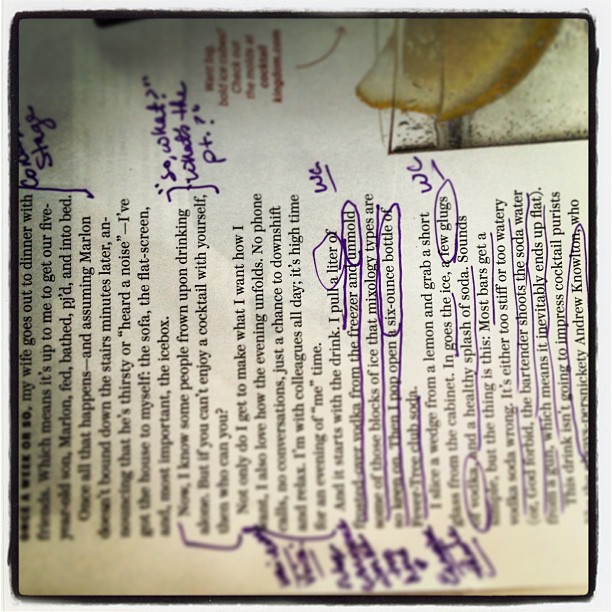 ONCE A WEEK OR SO, my wife goes out to dinner with
friends. Which means it's up to me to get our five-
year-old son, Marlon, fed, bathed, pj'd, and into bed.
Once all that happens—and assuming Marlon
doesn't bound down the stairs minutes later, an-
nouncing that he's thirsty or "heard a noise"—I've
got the house to myself: the sofa, the flat-screen,
and, most important, the icebox.
Now, I know some people frown upon drinking
alone. But if you can't enjoy a cocktail with yourself,
then who can you?
Not only do I get to make what I want how I
want, I also love how the evening unfolds. No phone
calls, no conversations, just a chance to downshift
and relax. I'm with colleagues all day; it's high time
for an evening of "me" time.
And it starts with the drink. I pull a liter of
frosted-over vodka from the freezer and unmold
some of those blocks of ice that mixology types are
so keen on. Then I pop open a six-ounce bottle of
Fever-Tree club soda.
I slice a wedge from a lemon and grab a short
glass from the cabinet. In goes the ice, a few glugs
vodka and a healthy splash of soda. Sounds
simple, but the thing is this: Most bars get a
vodka soda wrong. It's either too stiff or too watery
(or, God forbid, the bartender shoots the soda water
from a gun, which means it inevitably ends up flat).
This drink isn't going to impress cocktail purists
Andrew Knowlton, who
stage
"so, what?"
what's the
pt.?"
wc
wc
Want big,
bold ice cubes?
Check out
the molds at
cocktail
kingdom.com